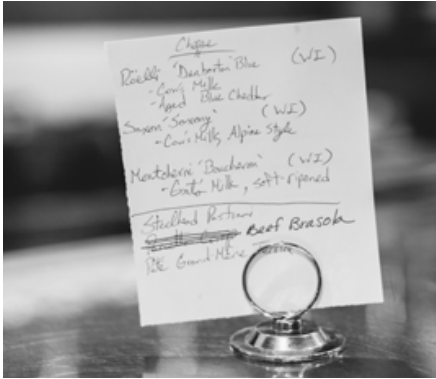 Cheese
Roelli 'Dunbarton' Blue (WI)
- Cow's Milk
- Aged Blue Cheddar
Saxon "Saxony" (WI)
- Cow's Milk, Alpine Style
Montchevré 'Boucheron' (WI)
- Goat's Milk, soft-ripened
Steelhead Pastrami
Beef Brasola
Pâte Grand Mère